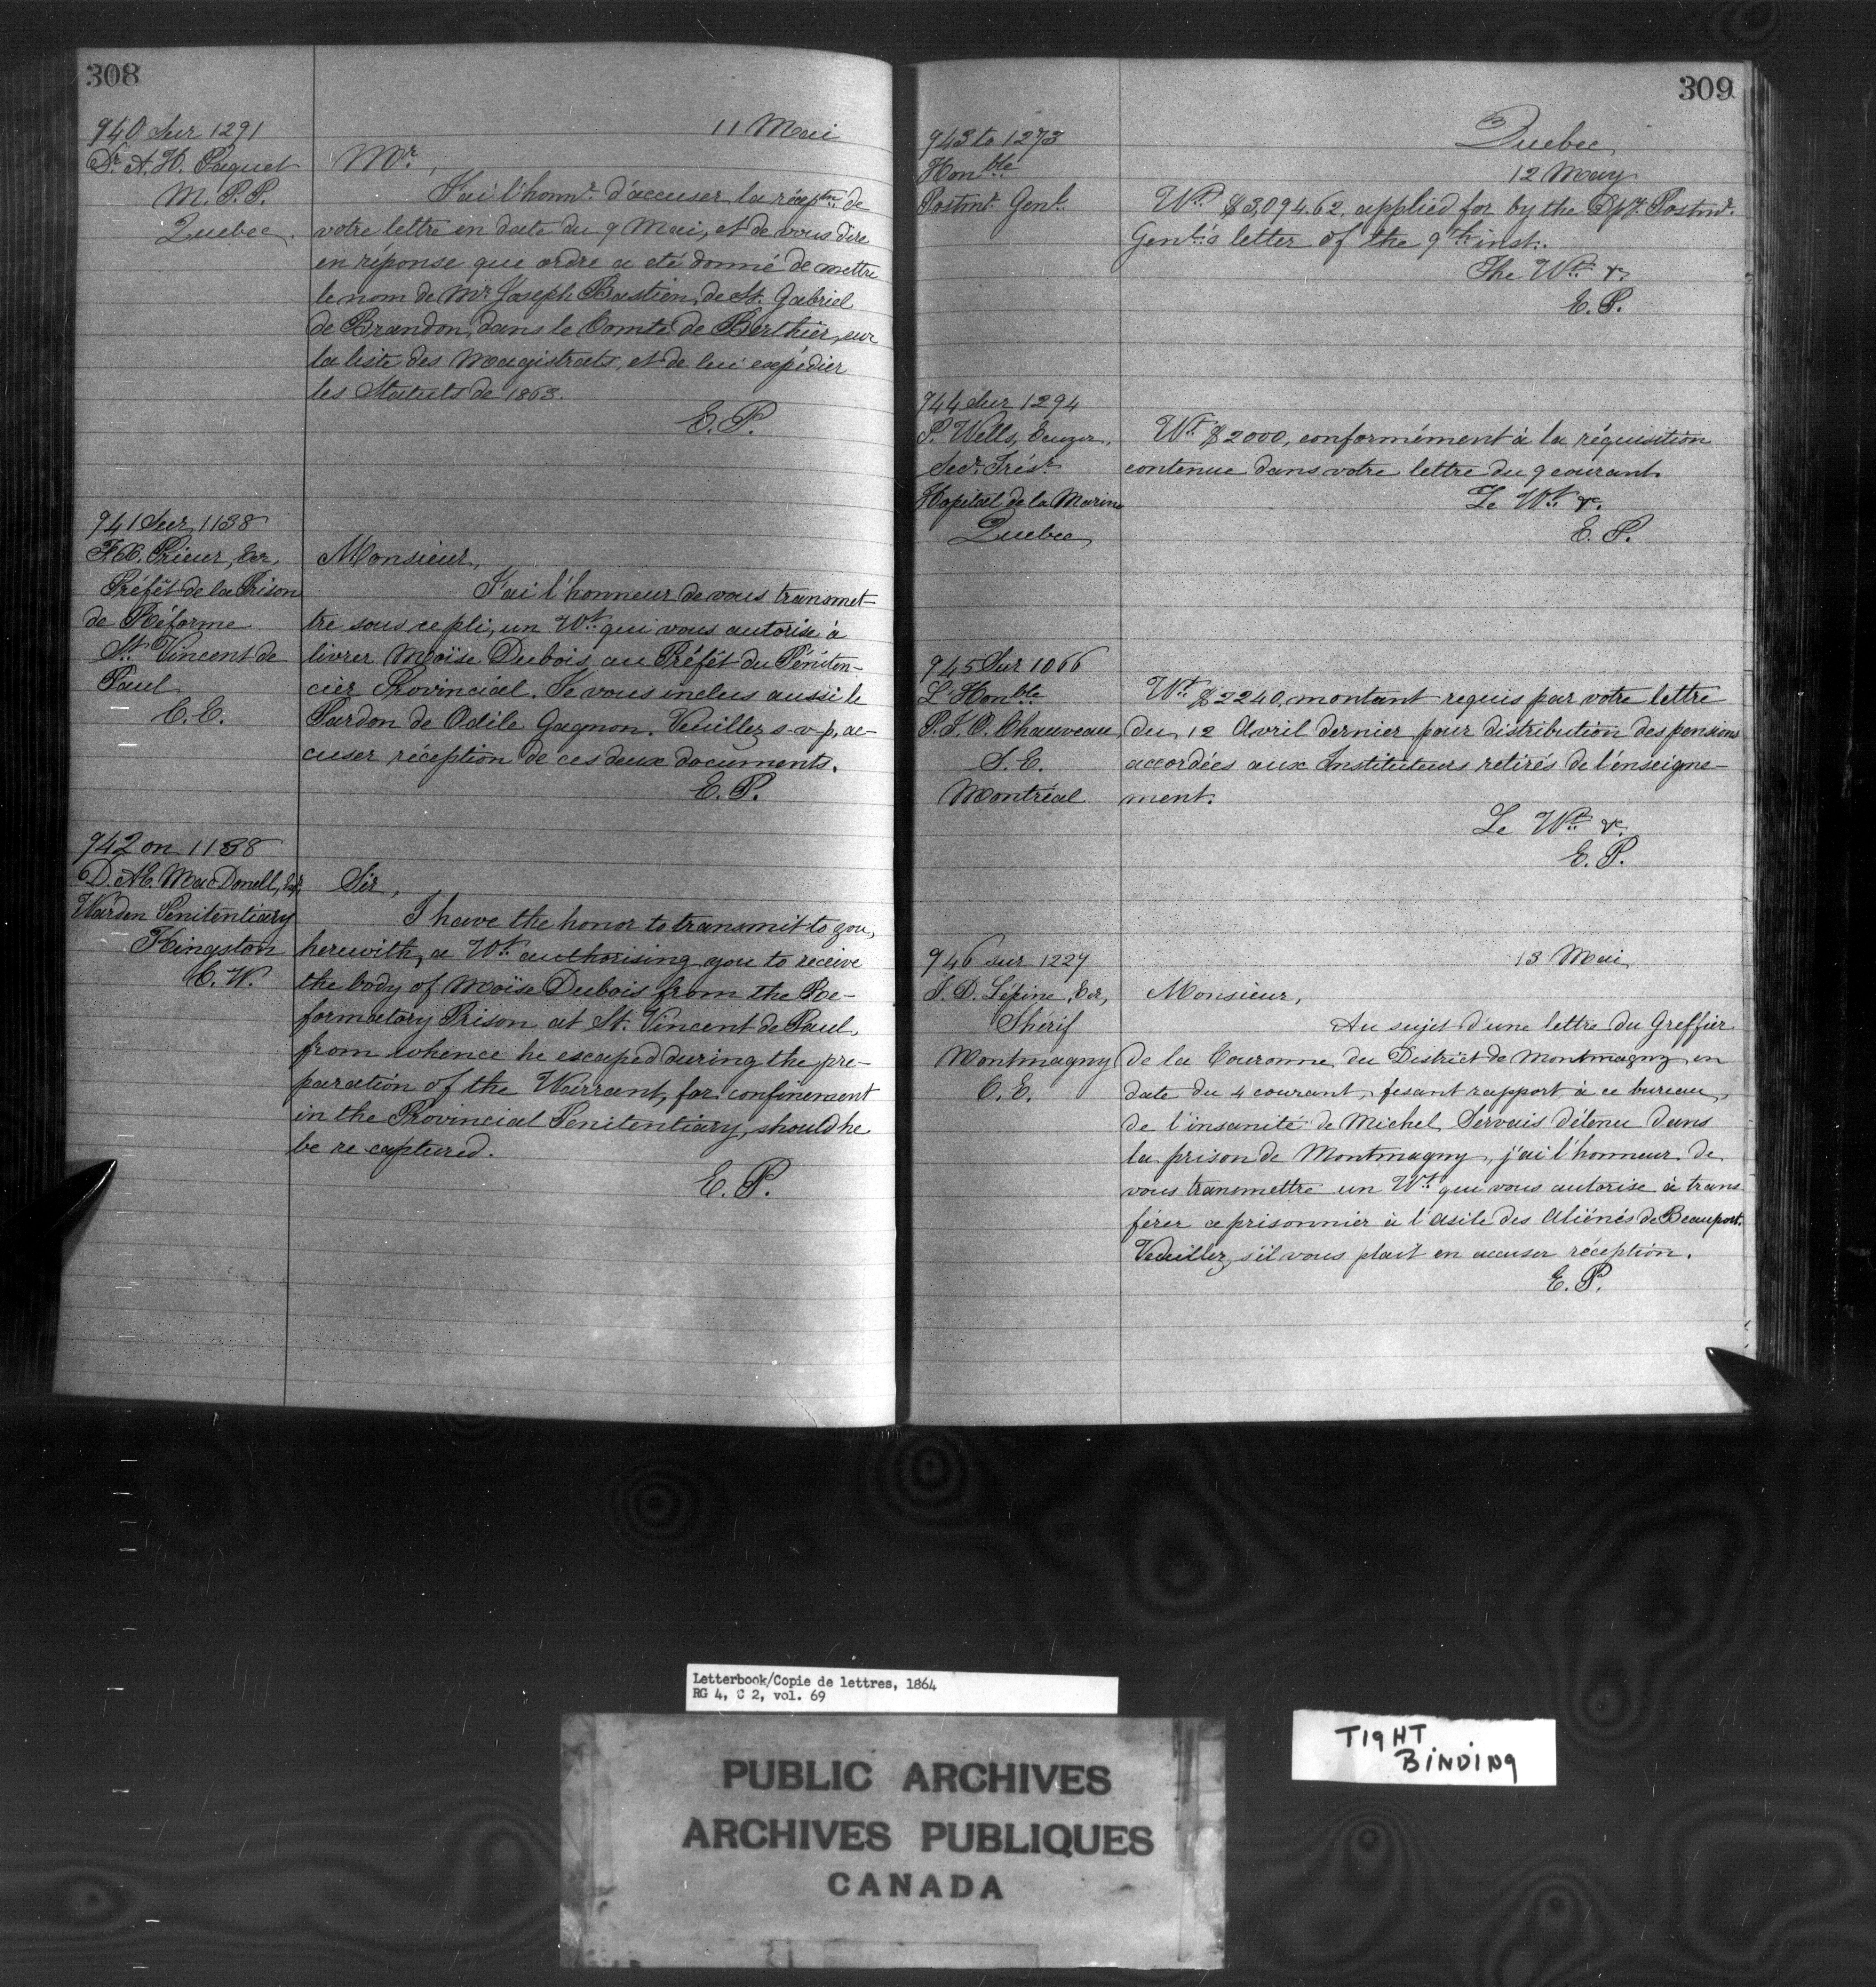 308
940 Sur 1291
Dr. A. H. Paquet
M. P. P.
Quebec.
11 Mai
Mr.,
J'ai l'honnr. d'accuser la récéptn. de
votre lettre en date du 9 Mai, et de vous dire
en réponse que ordre a eté donné de mettre
le nom de Mr. Joseph Bastien, de St. Gabriel
de Brandon, dans le Comté de Berthier, sur
la liste des Magistrats, et de lui expédier
les Statuts de 1863.
E. P.
941 Sur 1138
F. X. Prieur, Ecr,
Préfêt de la Prison
de Réforme
St. Vincent de
Paul
C. E.
Monsieur,
J'ai l'honneur de vous transmet-
tre sous ce pli, un Wt. qui vous autorise à
livrer Moïse Dubois, au Préfêt du Péniten-
cier Provincial. Je vous inclus aussi le
Pardon de Odile Gagnon. Veuillez s-v-p, ac-
cuser réception de ces deux documents.
E. P.
942 on 1138
D. AE. MacDonell, Esqr,
Warden Penitentiary
Kingston
C. W.
Sir,
I have the honor to transmit to you,
herewith, a Wt. authorising you to receive
the body of Moïse Dubois from the Re-
formatory Prison at St. Vincent de Paul,
from whence he escaped during the pre-
paration of the Warrant, for confinement
in the Provincial Penitentiary, should he
be re captured.
E. P.
309
Quebec,
943 to 1273
Honble
Postmr. Genl.
12 May
Wt. $3,094.62, applied for by the Dpy. Postmr.
Genl's letter of the 9th inst.
The Wt. &c.
E. P.
944 Sur 1294
P. Wells, Ecuyer,
Secr. Trésr.
Hopital de la Marine
Quebec,
Wt. $2000, conformément à la réquisition
contenue dans votre lettre du 9 courant.
Le Wt. &c.
E. P.
945 Sur 1066
L'Honble
P. J. O. Chauveau,
S. E.
Montréal
Wt. $2240, montant requis par votre lettre
du 12 Avril dernier pour distribution des pensions
accordées aux Instituteurs retirés de l'enseigne-
ment.
Le Wt. &c.
E. P.
946 sur 1227
J. D. Lépine, Ecr,
Shérif
Montmagny
C. E.
13 Mai,
Monsieur,
Au sujet d'une lettre du Greffier
de la Couronne du District de Montmagny en
date du 4 courant, fesant rapport à ce bureau,
de l'insanité de Michel Servais détenu dans
la prison de Montmagny, j'ai l'honneur de
vous transmettre un Wt. qui vous autorise à trans
férer ce prisonnier à l'Asile des Aliénés de Beauport.
Veuillez, s'il vous plait en accuser réception.
E. P.
Letterbook/Copie de lettres, 1864
RG 4, C 2, vol. 69
PUBLIC ARCHIVES
ARCHIVES PUBLIQUES
CANADA
TIGHT
BINDING